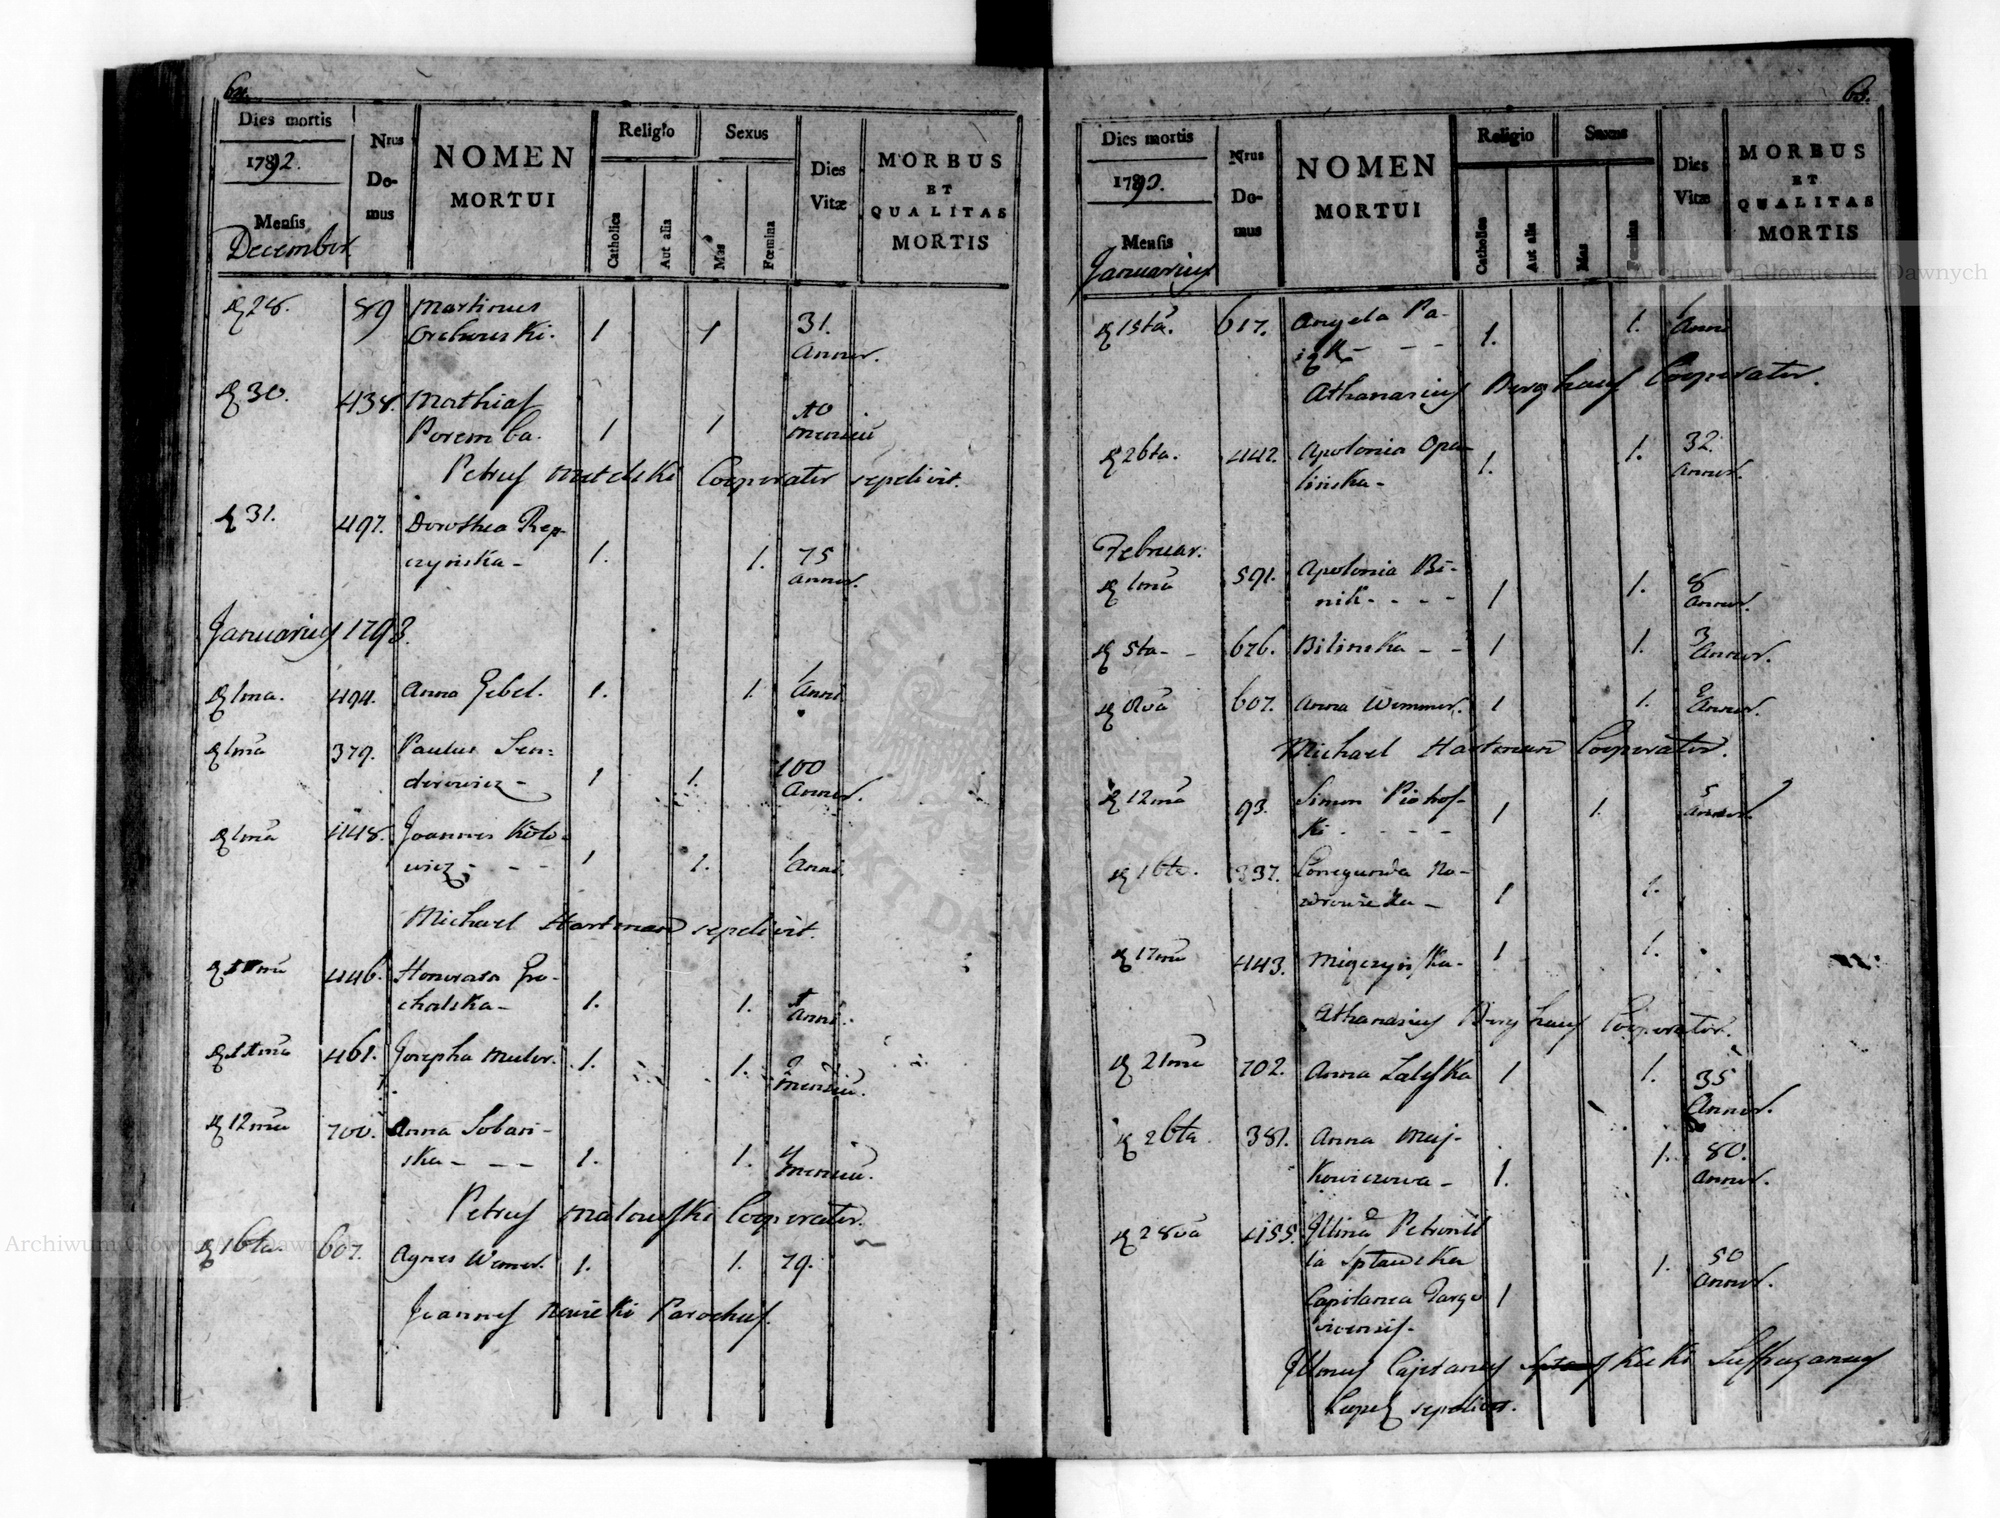 64.
Dies mortis
1792.
Mensis
December
Nrus
Do-
mus
NOMEN
MORTUI
Religio
Catholica
Aut alia
Sexus
Mas
Fœmina
Dies
Vitæ
MORBUS
ET
QUALITAS
MORTIS
28. 89 Martinus
1 1 31.
Annor.
30. 438. Mathias
Poremba. 1 1 10
mensiu
Petrus Cooperator sepelivit.
31. 497. Dorothea Rep-
czyńska - 1. 1. 75
annor.
Januarius 1793.
1ma. 494. Anna Gebel. 1. 1. 1 Anni.
1ma 379. Paulus Sen=
derowicz - 1 1. 100
Annor.
1ma 448. Joannes Koto-
wicz - - - 1 1. 1 Anni.
Michael Hartman sepelivit.
446. Honorata Gro-
chalska - 1. 1. 1 Anni.
461. Josepha Muler. 1. 1. 2
mensiu.
12ma 700. Anna Sobań-
ska - - - 1. 1. 4
mensiu.
Petrus Matowski Cooperator.
16ta. 607. Agnes Wemer. 1. 1. 79.
Joannes Parochus.
65.
Dies mortis
1793.
Mensis
Januarius
Nrus
Do-
mus
NOMEN
MORTUI
Religio
Catholica
Aut alia
Sexus
Mas
Fœmina
Dies
Vitæ
MORBUS
ET
QUALITAS
MORTIS
Archiwum Główne Akt Dawnych
21sta. 617. Angela Pa-
- - - 1. 1. 1 Anni
Athanasius Berghaus Cooperator.
26ta. 442. Apolonia Opa-
lińska - 1. 1. 32.
Annor.
Februar.
1ma 591. Apolonia Bi-
nik - - - - 1 1. 8
Annor.
5ta - - 676. Bilinska - - 1 1. 3
Annor.
8va 607. Anna Wemmer. 1 1. 2
Annor.
Michael Hartman Cooperator.
12ma 93. Simon Piotrof-
ki - - - - 1 1. 5
Annor.
16ta. 337. Conegunda Na-
1 1.
17ma 443. Mięczyńska - 1 1.
Athanasius Berghaus Cooperator.
21ma 702. Anna Zaleska 1 1. 35
Annor.
26ta 381. Anna Maj-
kowiczowa - 1. 1. 80.
Annor.
28va 455. Illma Petronil
la Sptawska
Capitanea Targo 1 1. 50
Annor.
viensis -
Illmus Cajetanus Kicki Suffraganeus
sepelivit.
ARCHIWUM GŁÓWNE AKT DAWNYCH
Archiwum Główne Akt Dawnych